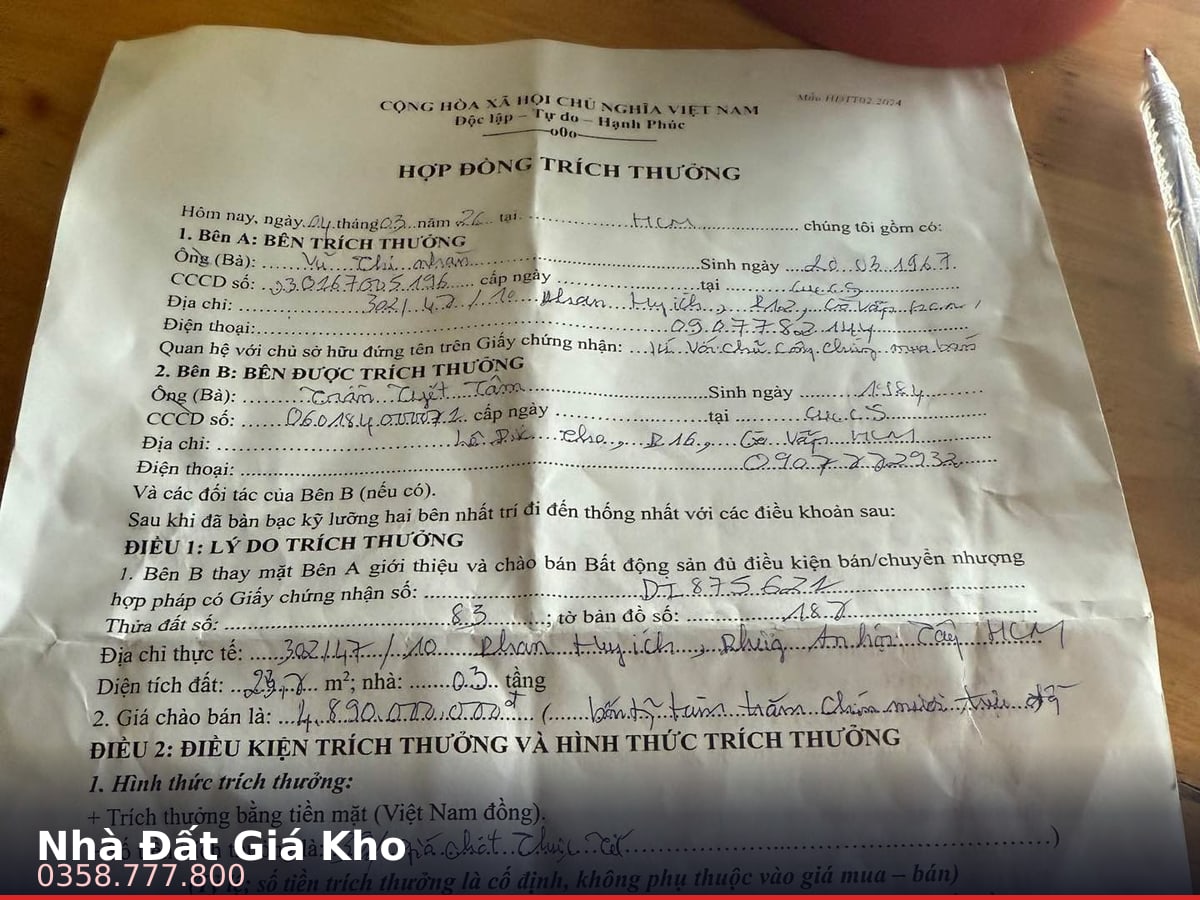 Mẫu HĐTT02.2024
CỘNG HÒA XÃ HỘI CHỦ NGHĨA VIỆT NAM
Độc lập – Tự do – Hạnh Phúc
o0o
HỢP ĐỒNG TRÍCH THƯỞNG
Hôm nay, ngày 04 tháng 03 năm 26 tại HCM chúng tôi gồm có:
1. Bên A: BÊN TRÍCH THƯỞNG
Ông (Bà): Vũ Thị Sinh ngày 20.03.1967
CCCD số: 030167005196 cấp ngày tại Cục CS
Địa chỉ: 302/47/10 Phan Huy ích, P12, Gò Vấp HCM
Điện thoại: 0907782144
Quan hệ với chủ sở hữu đứng tên trên Giấy chứng nhận: với chủ công chứng mua bán
2. Bên B: BÊN ĐƯỢC TRÍCH THƯỞNG
Ông (Bà): Trần Tuyết Tâm Sinh ngày 1984
CCCD số: cấp ngày tại Cục CS
Địa chỉ: Lê Đức Thọ, P16, Gò Vấp HCM
Điện thoại:
Và các đối tác của Bên B (nếu có).
Sau khi đã bàn bạc kỹ lưỡng hai bên nhất trí đi đến thống nhất với các điều khoản sau:
ĐIỀU 1: LÝ DO TRÍCH THƯỞNG
1. Bên B thay mặt Bên A giới thiệu và chào bán Bất động sản đủ điều kiện bán/chuyển nhượng
hợp pháp có Giấy chứng nhận số:
Thửa đất số: 83; tờ bản đồ số:
Địa chỉ thực tế: 302/47/10 Phan Huy ích, An hội Tây HCM
Diện tích đất: m²; nhà: 03 tầng
2. Giá chào bán là: 4.890.000.000đ (bốn tỷ tám trăm chín mươi triệu
ĐIỀU 2: ĐIỀU KIỆN TRÍCH THƯỞNG VÀ HÌNH THỨC TRÍCH THƯỞNG
1. Hình thức trích thưởng:
+ Trích thưởng bằng tiền mặt (Việt Nam đồng).
là: giá chốt thực tế)
số tiền trích thưởng là cố định, không phụ thuộc vào giá mua – bán)
Nhà Đất Giá Kho
0358.777.800